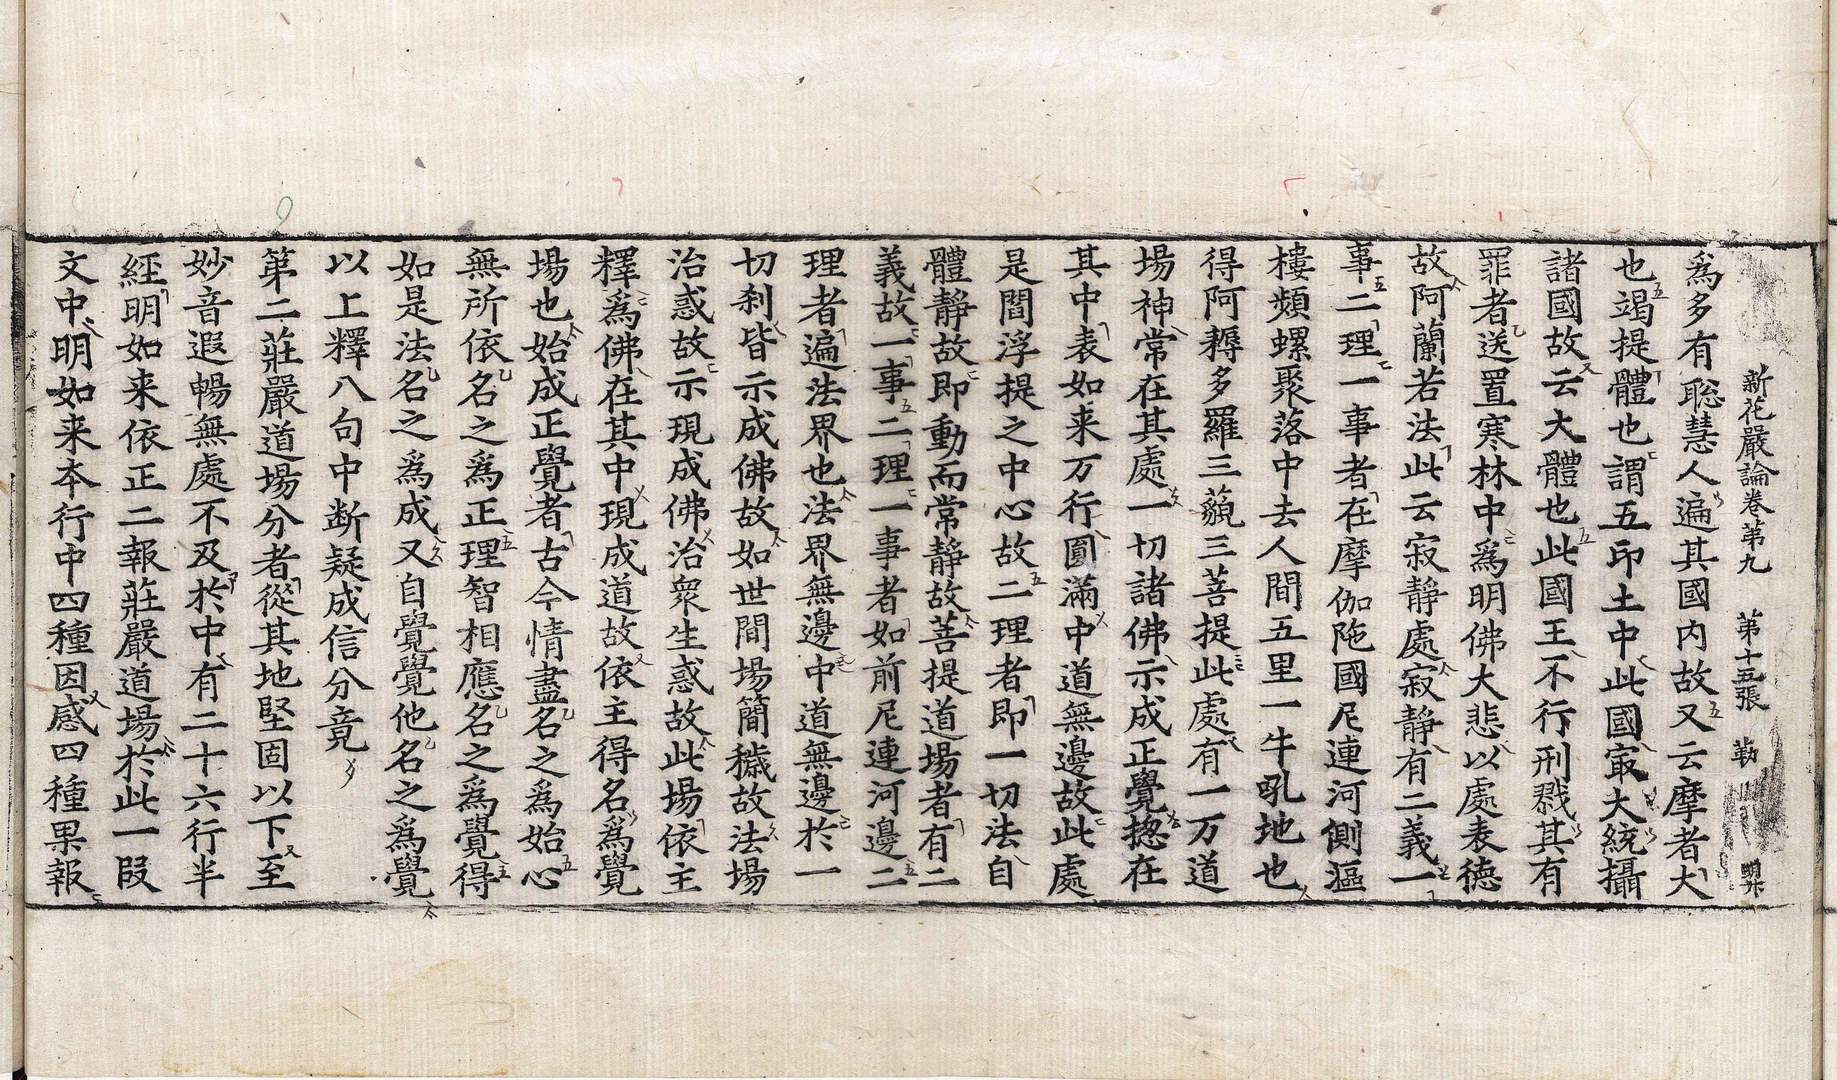 新花嚴論卷第九　第十五張　勒
爲多有聡慧人遍其國内故又云摩者大
也竭提體也謂五印土中此國㝡大統攝
諸國故云大體也此國王不行刑戮其有
罪者送置寒林中爲明佛大悲以處表德
故阿蘭若法此云寂静處寂静有二義一
事二理一事者在摩伽陁國尼連河側漚
樓頻螺聚落中去人間五里一牛吼地也
得阿耨多羅三藐三菩提此處有一万道
場神常在其處一切諸佛示成正覺揔在
其中表如来万行圓滿中道無邊故此處
是閻浮提之中心故二理者即一切法自
體静故即動而常静故菩提道場者有二
義故一事二理一事者如前尼連河邊二
理者遍法界也法界無邊中道無邊於一
切刹皆示成佛故如世間場簡穢故法場
治惑故示現成佛治衆生惑故此場依主
釋爲佛在其中現成道故依主得名爲覺
場也始成正覺者古今情盡名之爲始心
無所依名之爲正理智相應名之爲覺得
如是法名之爲成又自覺覺他名之爲覺
以上釋八句中断疑成信分竟
第二莊嚴道場分者從其地堅固以下至
妙音遐暢無處不及於中有二十六行半
經明如来依正二報莊嚴道場於此一叚
文中明如来本行中四種因感四種果報